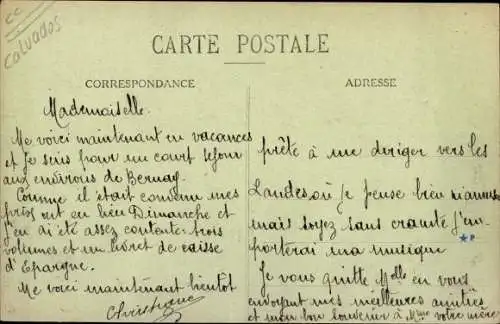 cc
calvados
CARTE POSTALE
CORRESPONDANCE
Mademoiselle.
Me voici maintenant en vacances
et Je suis pour un court séjour
aux environs de Bernay.
Comme il était convenu mes
prix ont eu lieu Dimanche et
j'en ai été assez contente: trois
volumes et un livret de caisse
d'Epargne.
Me voici maintenant bientôt
Christiane
ADRESSE
prête à me diriger vers les
Landes, où je pense bien m'amuser
mais soyez sans crainte j'em-
porterai ma musique
Je vous quitte Melle en vous
envoyant mes meilleures amitiés
et mon bon souvenir à Mme votre mère